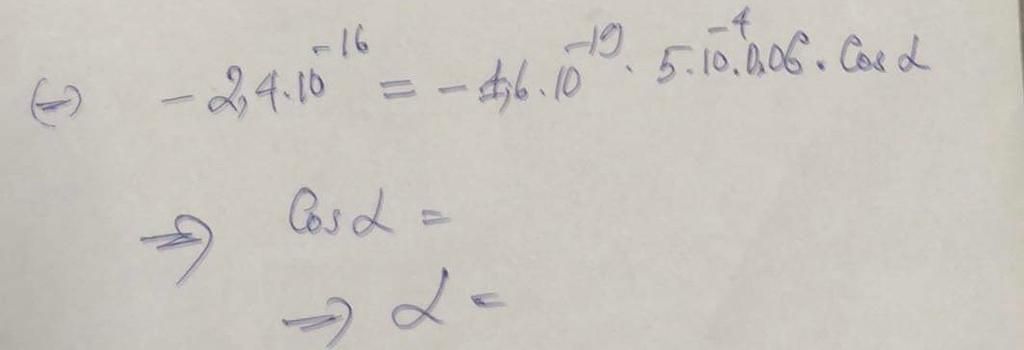 (=) -2,4.10^-16 = -1,6.10^-19. 5.10^-4.0,06. Cos α
=> Cos α =
=> α =